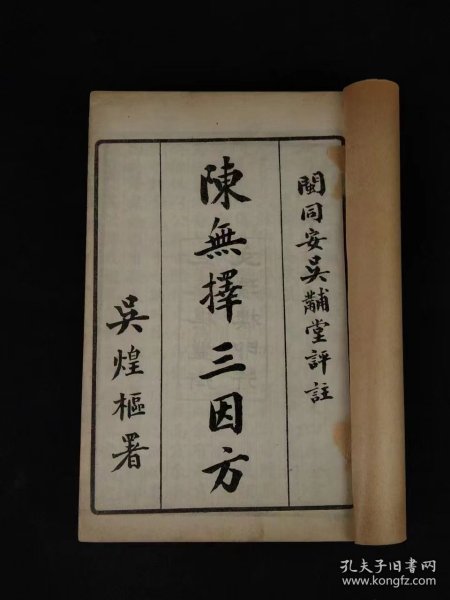 閩同安吳黼堂評註
陳無擇三因方
吳煌樞署
孔夫子旧书网
www.kongfz.com